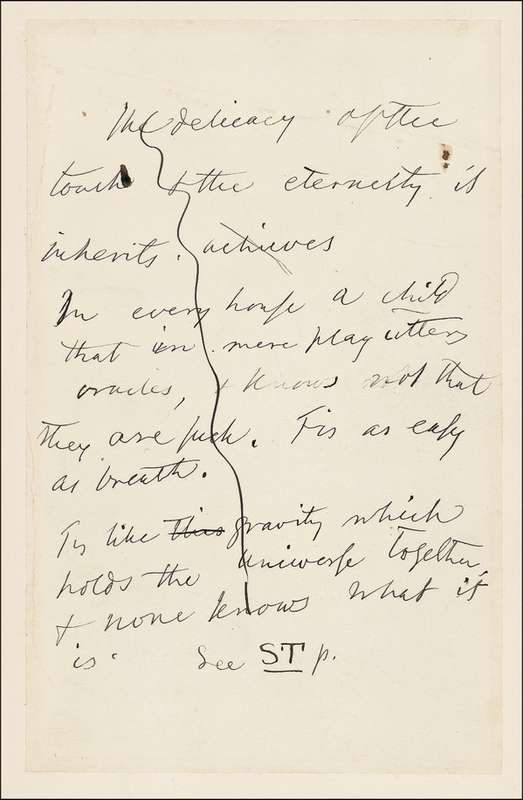 The delicacy of the
touch & the eternity it
inherits. achieves
In every house a child
that in mere play utters
oracles, & knows not that
they are such. Tis as easy
as breath.
Tis like this gravity which
holds the Universe together,
& none knows what it
is. See ST p.